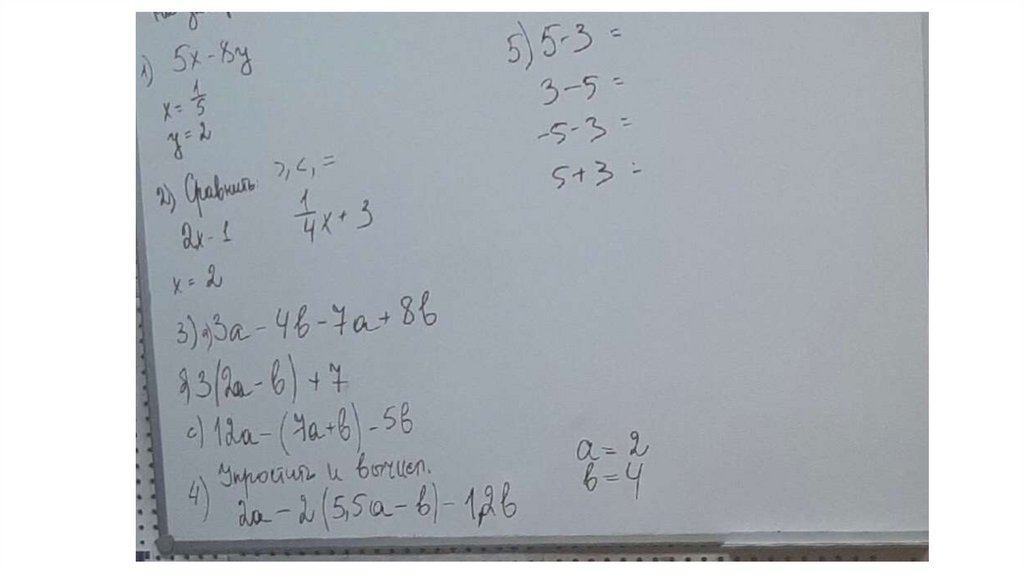 1) 5x - 8y
x = 1/5
y = 2
2) Сравнить: >, <, =
2x - 1    1/4 x + 3
x = 2
3) а) 3a - 4b - 7a + 8b
3(2a - b) + 7
c) 12a - (7a + b) - 5b
4) Упростить и вычисл.
2a - 2(5,5a - b) - 1,2b
a = 2
b = 4
5) 5 - 3 =
3 - 5 =
-5 - 3 =
5 + 3 =